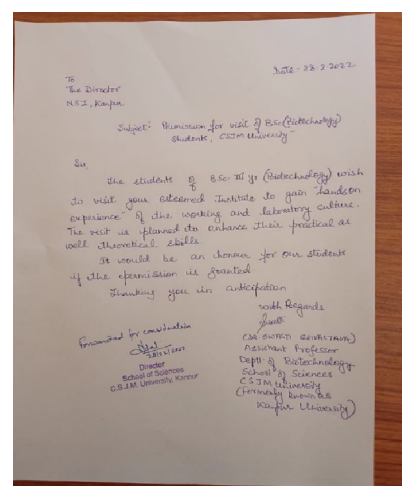 Date - 28.2.2022
To
The Director
N.S.I, Kanpur
Subject: Permission for visit of B.Sc (Biotechnology)
Students, CSJM University
Sir,
The students of B.Sc. III yr (Biotechnology) wish
to visit your esteemed Institute to gain "hands on
experience" of the working and laboratory culture.
The visit is planned to enhance their practical as
well theoretical skills.
It would be an honour for our students
if the permission is granted
Thanking you in anticipation
with Regards
(DR. SWASTI SRIVASTAVA)
Assistant Professor
Deptt. of Biotechnology
School of Sciences
CSJM University
(Formerly known as
Kanpur University)
Forwarded for consideration
Director
School of Sciences
C.S.J.M. University, Kanpur